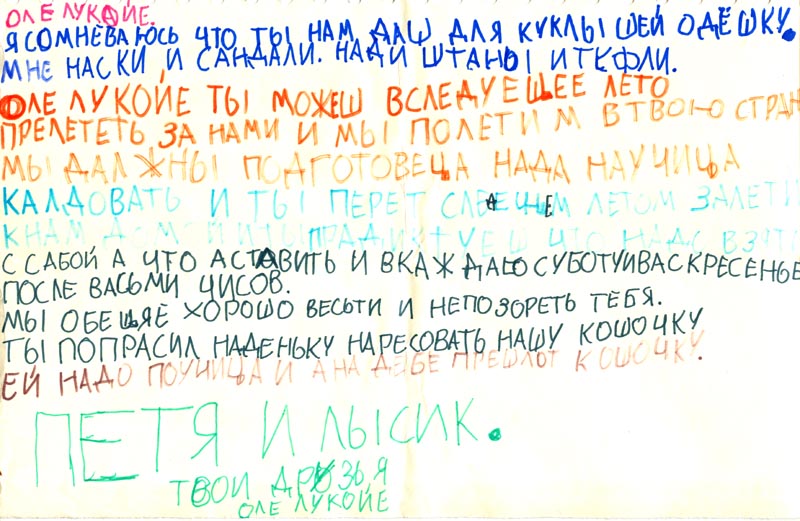 ОЛЕ ЛУКОЙЕ.
Я СОМНЕВАЮСЬ ЧТО ТЫ НАМ ДАШ ДЛЯ КУКЛЫ ШЕЙ ОДЁШКУ.
МНЕ НАСКИ И САНДАЛИ. НАДИ ШТАНЫ И ТЕФЛИ.
ОЛЕ ЛУКОЙЕ ТЫ МОЖЕШ ВСЛЕДУЕЩЕЕ ЛЕТО
ПРЕЛЕТЕТЬ ЗА НАМИ И МЫ ПОЛЕТИМ В ТВОЮ СТРАН
МЫ ДАЛЖНЫ ПОДГОТОВЕЦА НАДА НАУЧИЦА
КАЛДОВАТЬ И ТЫ ПЕРЕТ ЛЕТОМ ЗАЛЕТИ
КНАМ ДОМОЙ И ТЫ ПРАДИКТУЕШ ЧТО НАДО ВЗЯТЬ
С САБОЙ А ЧТО АСТАВИТЬ И ВКАЖДАЮ СУБОТУ И ВАСКРЕСЕНЬЕ
ПОСЛЕ ВАСЬМИ ЧИСОВ.
МЫ ОБЕЩЯЕ ХОРОШО ВЕСЬТИ И НЕПОЗОРЕТЬ ТЕБЯ.
ТЫ ПОПРАСИЛ НАДЕНЬКУ НАРЕСОВАТЬ НАШУ КОШОЧКУ
ЕЙ НАДО ПОУЧИЦА И АНА ДЕБЕ ПРЕШЛОТ КОШОЧКУ.
ПЕТЯ И ЛЫСИК.
ТВОИ ДРУЗЬЯ
ОЛЕ ЛУКОЙЕ